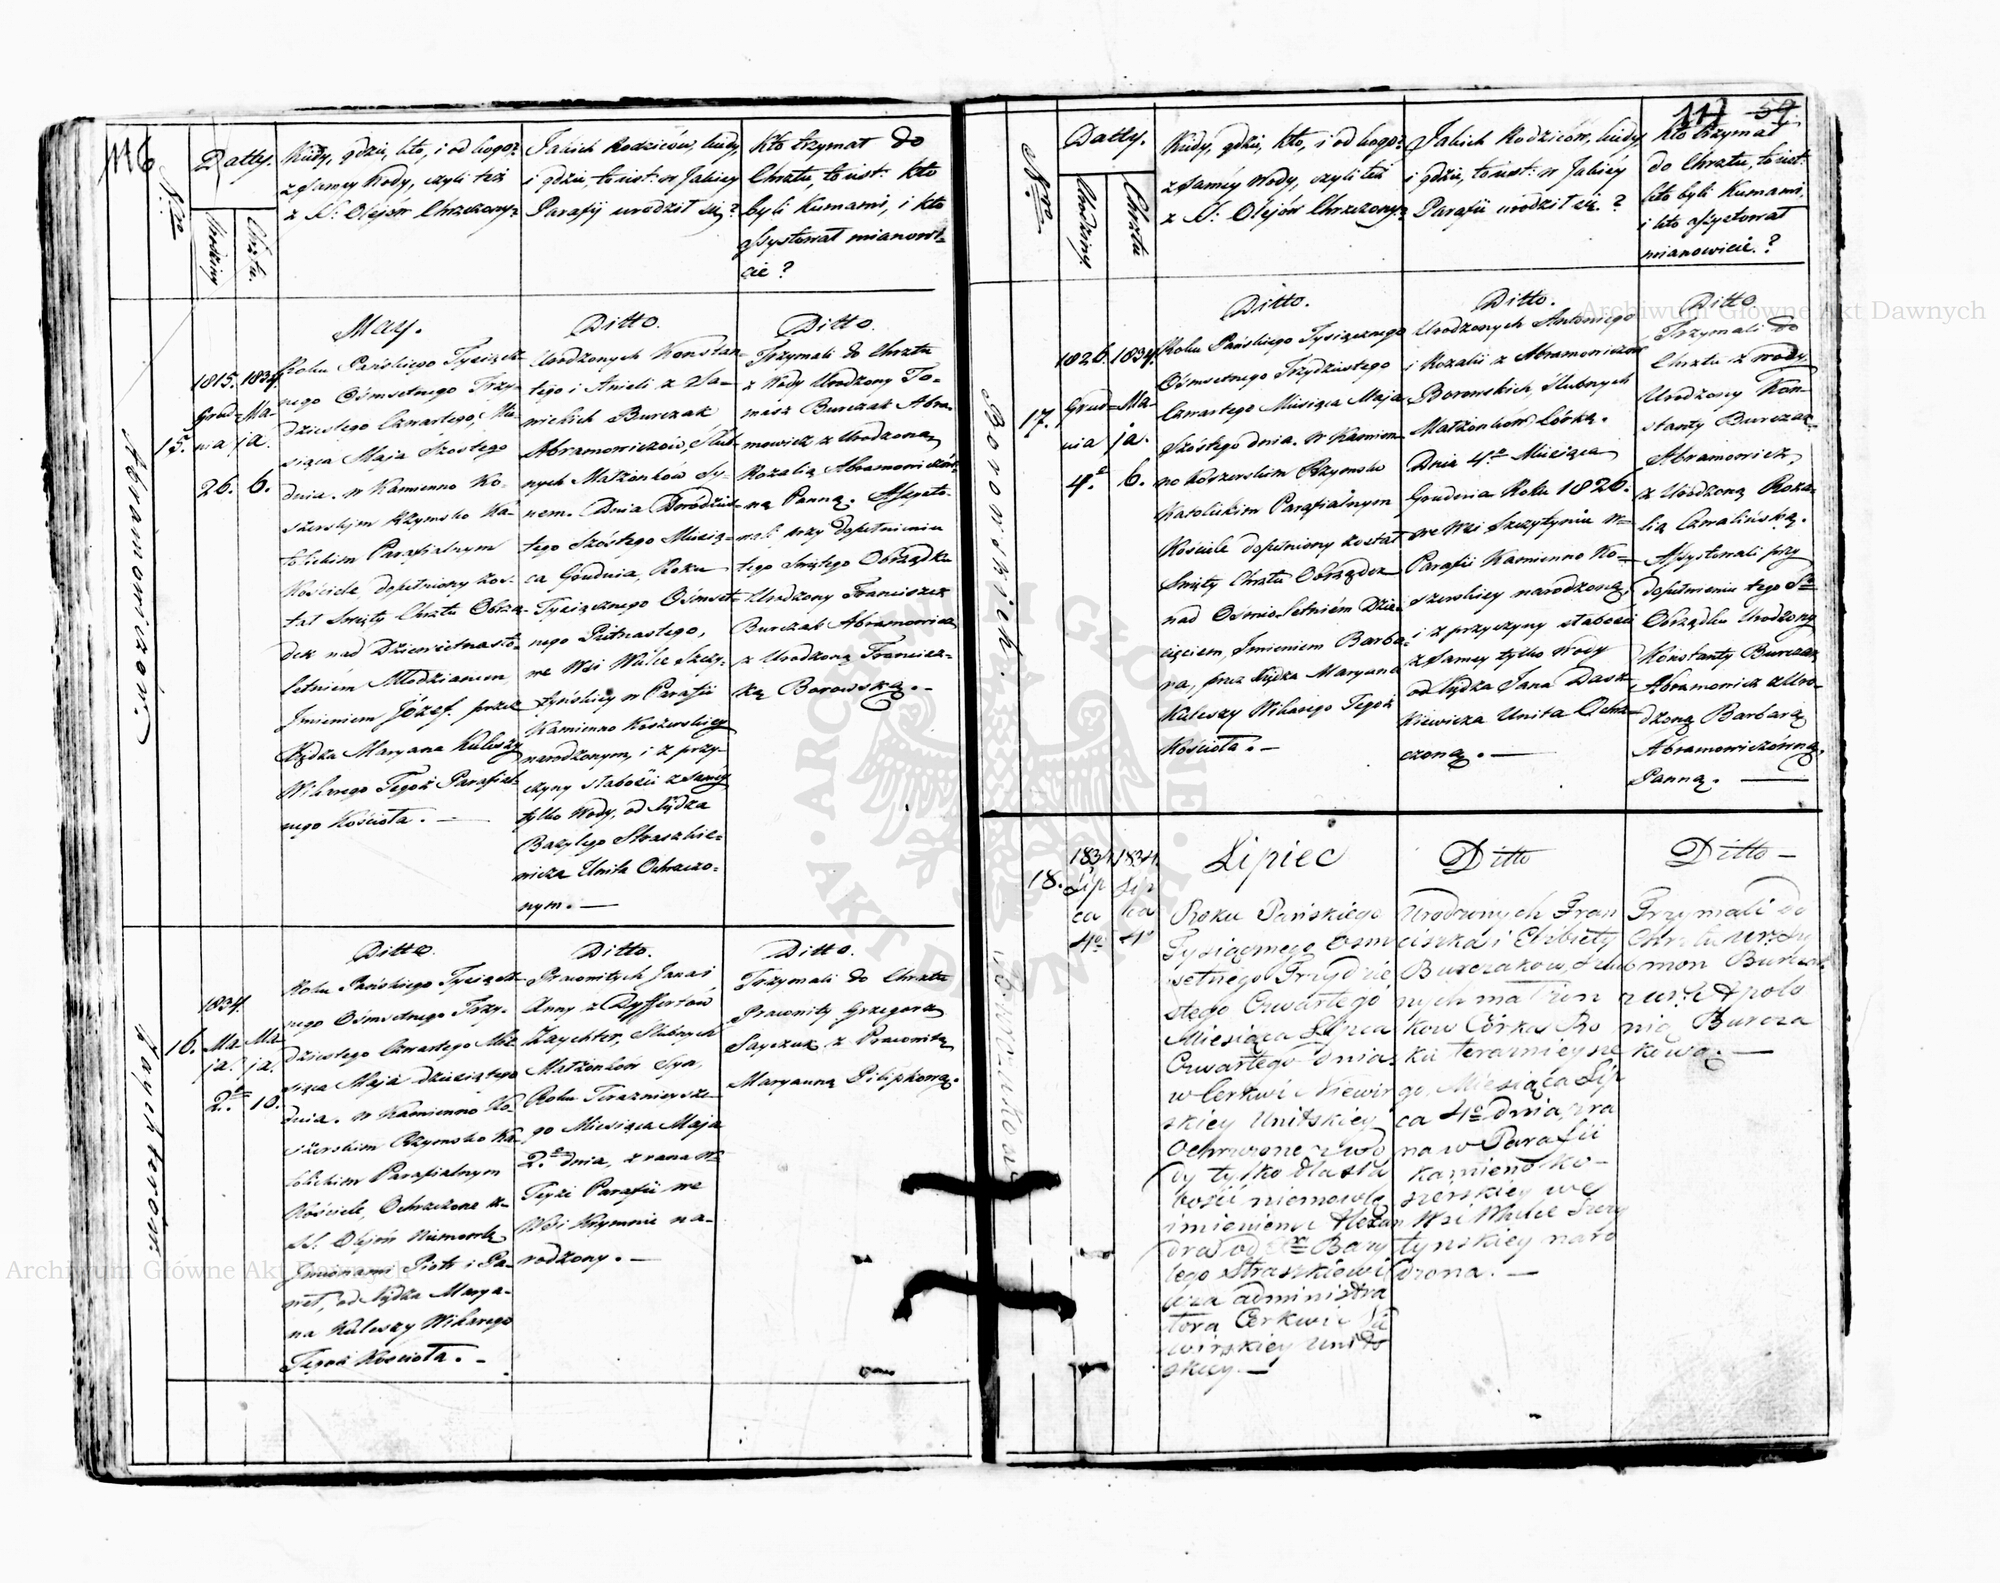 116
Nro
Datty.
Urodziny
Chrztu.
Kiedy, gdzie, kto, i od kogo?
z samey Wody, czyli też
z SS: Olejów Chrzczony?
Jakich Rodziców, kiedy,
i gdzie, to iest: w Jakiey
Parafij urodził się?
Kto trzymał do
Chrztu, to iest: kto
byli Kumami, i kto
assystował mianowi-
cie?
Abramowiczów.
15.
1815. 1834.
Grud= Ma-
nia ja.
26. 6.
May.
Roku Pańskiego Tysiącz-
nego Ośmsetnego Trzy-
dziestego Czwartego, Mie-
siąca Maja Szostego
dnia. w Kamienno Ko-
szerskim Rzymsko Ka-
tolickim Parafialnym
Kościele dopełniony zos-
tał Święty Chrztu Obrzą-
dek nad Dziewietnasto-
letniem Młodzianem,
Jmieniem Józef. przez
Xiędza Maryana Kuleszy
Wikarego Tegoż Parafial-
nego Kościoła. —
Ditto.
Urodzonych Konstan-
tego i Anieli z Sa-
wickich Burczak
Abramowiczow, Ślub-
nych Małżonków Sy-
nem. Dnia Dwódzies-
tego Szóstego Miesią-
ca Grudnia, Roku
Tysiącznego Ośmset-
nego Piętnastego,
we Wsi Wulce Szczy-
tyńskiey w Parafii
Kamienno Koszerskiey
narodzonym, i z przy-
czyny słabości z samey
tylko Wody, od Xiędza
Bazylego Straszkie-
wicza Unita Ochrzczo-
nym. —
Ditto.
Trzymali do Chrztu
z Wody Urodzony To-
masz Burczak Abra-
mowicz z Urodzoną
Rozalią Abramowiczów-
ną Panną. Assysto-
wali przy dopełnieniu
tego Świętego Obrządku
Urodzony Franciszek
Burczak Abramowicz
z Urodzoną Francisz-
ką Borowską. —
Zaychterów.
16.
1834.
Ma- Ma-
ja. ja.
2. 10.
Ditto.
Roku Pańskiego Tysiącz-
nego Ośmsetnego Trzy-
dziestego Czwartego Mie-
siąca Maja dziesiątego
dnia. w Kamienno Ko-
szerskim Rzymsko Ka-
tolickim Parafialnym
Kościele, Ochrzczone z
SS: Olejów Niemowle
Jmionami Piotr i Pa-
weł, od Xiędza Marya-
na Kuleszy Wikarego
Tegoż Kościoła. —
Ditto.
Pracowitych Jana i
Anny z Dyffertów
Zaychter, Ślubnych
Małżonków Syn,
Roku Teraznieysze-
go Miesiąca Maja
2. dnia, z rana w
Teyże Parafii we
Wsi Krymnie na-
rodzony. —
Ditto.
Trzymali do Chrztu
Pracowity Grzegorz
Sayczuk z Pracowitą
Maryanną Pilipkową.
117 59.
Nro.
Datty.
Urodziny
Chrztu
Kiedy, gdzie, kto, i od kogo?
z samey Wody, czyli też
z SS: Olejów Chrzczony?
Jakich Rodziców, kiedy
i gdzie, to iest: w Jakiey
Parafij urodził się.?
Kto trzymał
do Chrztu, to iest:
kto byli Kumami,
i kto assystował
mianowicie.?
Borowskich.
17.
1826. 1834.
Grud= Ma-
nia ja.
4. 6.
Ditto.
Roku Pańskiego Tysiącznego
Ośmsetnego Trzydziestego
Czwartego Miesiąca Maja
Szóstego dnia. w Kamien-
no Koszerskim Rzymsko
Katolickim Parafialnym
Kościele dopełniony został
Święty Chrztu Obrządek
nad Ośmio-Letniém Dzie-
cięciem, Jmieniem Barba-
ra, przez Xiędza Maryana
Kuleszy Wikarego Tegoż
Kościoła. —
Ditto.
Urodzonych Antoniego
i Rozalii z Abramowiczów
Borowskich, Ślubnych
Małżonków Córką.
Dnia 4. Miesiąca
Grudnia Roku 1826.
we Wsi Szczytyniu w
Parafii Kamienno Ko-
szerskiey narodzoną,
i z przyczyny słabości
z samey tylko Wody
od Xiędza Jana Dasz-
kiewicza Unita Ochrz-
czoną. —
Ditto
Trzymali do
Chrztu z wody
Urodzony Kon-
stanty Burczak
Abramowicz,
z Urodzoną Roza-
lią Cawalińską.
Assystowali przy
dopełnieniu tego S.
Obrządku Urodzony
Konstanty Burczak
Abramowicz z Uro-
dzoną Barbarą
Abramowiczówną
Panną. —
18.
1834 1834.
Lip Lip
ca ca
4 4
Lipiec
Roku Pańskiego
Tysiącznego Osm
setnego Trzydzie
stego Czwartego
Miesiąca Lipca
Czwartego dnia
w Cerkwi Niewir
skiey Unitskiey
Ochrzczone z wo
dy tylko dla sła
bości niemowlę
imieniem Alexan
dra od Bazy
lego Straszkiewi
cza administra
tora Cerkwi Nie
wirskiey Unit
skiey. —
Ditto
Urodzonych Fran
ciszka i Elżbiety
Burczaków, Ślub
nych małżon
ków Córka Ro
ku teraznieysze
go, Miesiąca Lip
ca 4 dnia, zra
na w Parafii
Kamieno Ko-
szerskiey we
Wsi Wulce Szczy
tynskiey naro
dzona. —
Ditto —
Trzymali do
Chrztu Urodzony
Burczak
z Apolo
nią Burcza
kową. —
Archiwum Główne Akt Dawnych
Archiwum Główne Akt Dawnych
ARCHIWUM GŁÓWNE AKT DAWNYCH